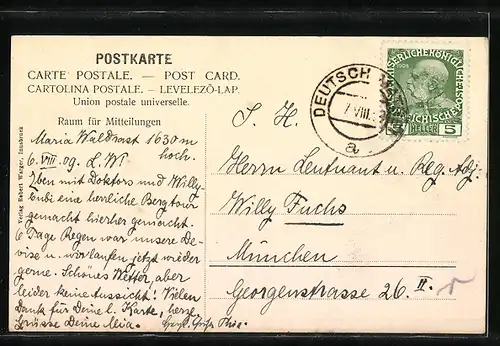 POSTKARTE
CARTE POSTALE. — POST CARD.
CARTOLINA POSTALE. — LEVELEZŐ-LAP.
Union postale universelle.
Raum für Mitteilungen
Maria Waldrast 1630 m
hoch.
6. VIII. 09. L. W!
Eben mit Doktors und Willy-
bubi eine herrliche Bergtour
gemacht hierher gemacht.
6 Tage Regen war unsere De-
vise u. wir laufen jetzt wieder
gerne. Schönes Wetter, aber
leider keine Aussicht! Vielen
Dank für Deine l. Karte, herzl.
Grüsse Deine Mia.
Verlag Robert Warger, Innsbruck
DEUTSCH
7 VIII
a
KAISERLICHE KÖNIGLICHE
1908
HELLER 5
S. H.
Herrn Leutnant u. Reg. Adj.
Willy Fuchs
München
Georgenstrasse 26 II.